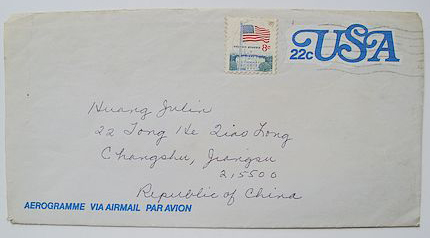 8c
22c USA
Huang Julin
22 Tong He Qiao Long
Changshu, Jiangsu
215500
Republic of China
AEROGRAMME VIA AIRMAIL PAR AVION